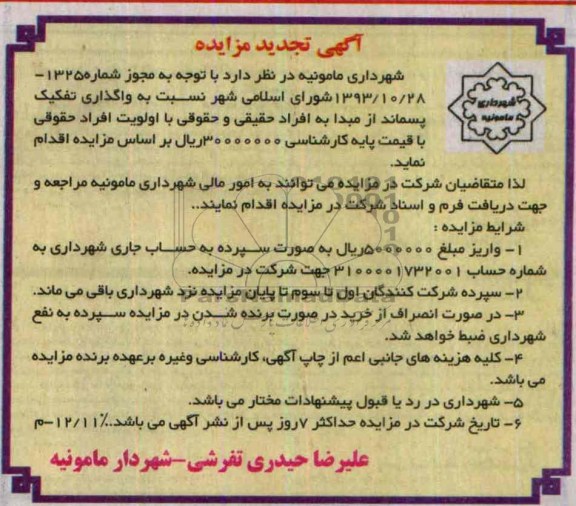 آگهی تجدید مزایده
شهرداری
مامونیه
شهرداری مامونیه در نظر دارد با توجه به مجوز شماره۱۳۲۵-
۱۳۹۳/۱۰/۲۸شورای اسلامی شهر نسبت به واگذاری تفکیک
پسماند از مبدا به افراد حقیقی و حقوقی با اولویت افراد حقوقی
با قیمت پایه کارشناسی ۳۰۰۰۰۰۰۰ریال بر اساس مزایده اقدام
نماید.
لذا متقاضیان شرکت در مزایده می توانند به امور مالی شهرداری مامونیه مراجعه و
جهت دریافت فرم و اسناد شرکت در مزایده اقدام نمایند..
شرایط مزایده :
۱- واریز مبلغ ۵۰۰۰۰۰۰ریال به صورت سپرده به حساب جاری شهرداری به
شماره حساب ۳۱۰۰۰۰۱۷۳۲۰۰۱ جهت شرکت در مزایده.
۲- سپرده شرکت کنندگان اول تا سوم تا پایان مزایده نزد شهرداری باقی می ماند.
۳- در صورت انصراف از خرید در صورت برنده شدن در مزایده سپرده به نفع
شهرداری ضبط خواهد شد.
۴- کلیه هزینه های جانبی اعم از چاپ آگهی، کارشناسی وغیره برعهده برنده مزایده
می باشد.
۵- شهرداری در رد یا قبول پیشنهادات مختار می باشد.
۶- تاریخ شرکت در مزایده حداکثر ۷روز پس از نشر آگهی می باشد..۱۲/۱۱٪-م
علیرضا حیدری تفرشی-شهردار مامونیه